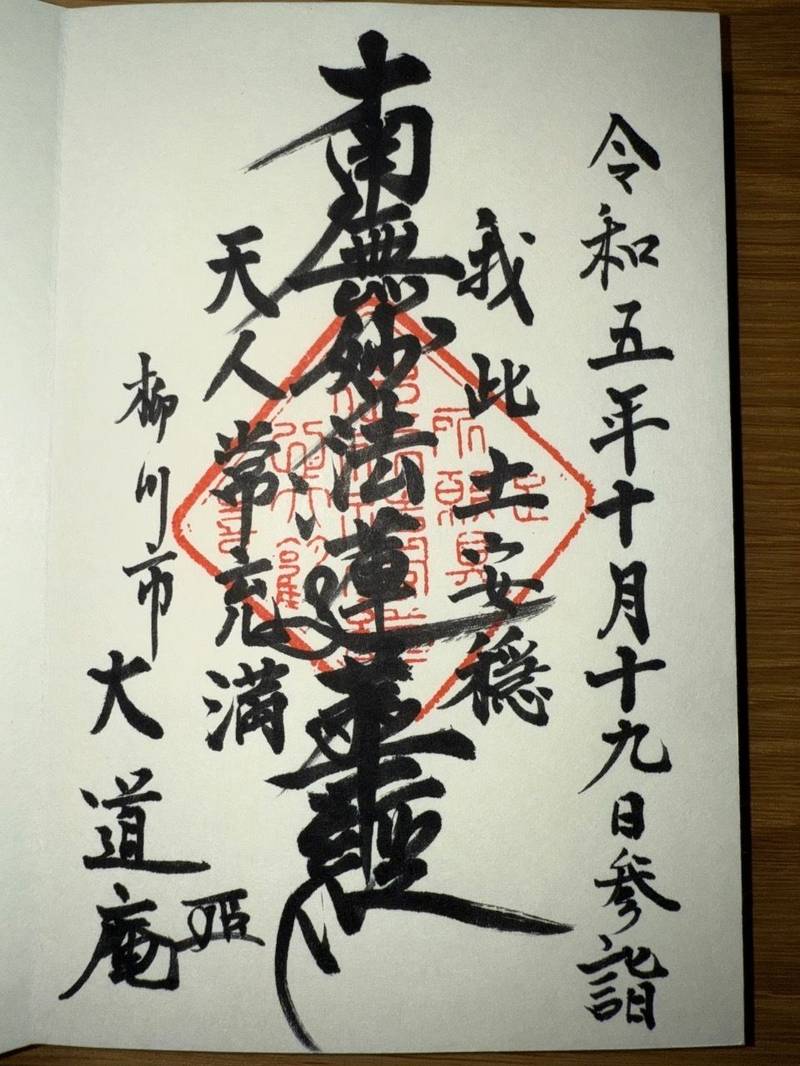 令和五年十月十九日参詣
我此土安穏
南無妙法蓮華經
天人常充満
柳川市
大道庵